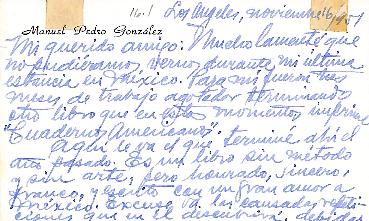 16.1
Los Angeles, noviembre 16/951
Manuel Pedro González
Mi querido amigo: Mucho lamenté que
no pudiéramos vernos durante mi última
estancia en México. Para mí fueron tres
meses de trabajo agotador terminando
otro libro que en estos momentos imprime
"Cuadernos Americanos".
Aquí le va el que terminé ahí el
año pasado. Es un libro sin método
y sin arte, pero honrado, sincero,
franco, y escrito con un gran amor a
México. Excuse Vd. las cansadas repeti-
ciones que en él descubrirá, debidas